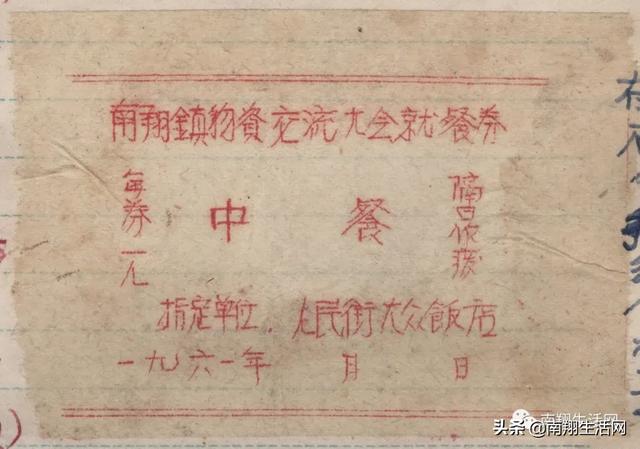 南翔鎮物資交流大会就餐券
每券一元
中 餐
隔日作废
指定单位.人民街大众飯店
一九六一年 月 日
南翔生活网
头条 @南翔生活网